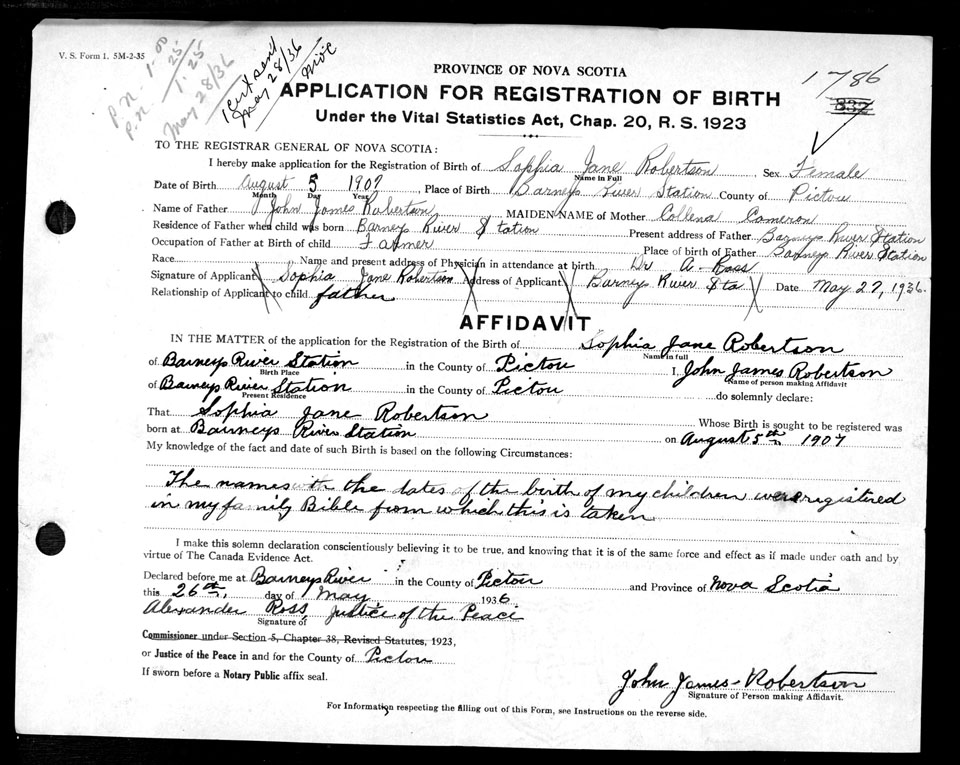 V. S. Form 1. 5M-2-35
P.N. 1.00
25
P.N. 1.25
May 28/36
Cert sent
May 28/36
PROVINCE OF NOVA SCOTIA
1786
832
APPLICATION FOR REGISTRATION OF BIRTH
Under the Vital Statistics Act, Chap. 20, R. S. 1923
TO THE REGISTRAR GENERAL OF NOVA SCOTIA:
I hereby make application for the Registration of Birth of Sophia Jane Robertson, Sex Female
Name in Full
Date of Birth August 5 1907, Place of Birth Barneys River Station County of Pictou
Month Day Year
Name of Father John James Robertson MAIDEN NAME of Mother Collena Cameron
Residence of Father when child was born Barneys River Station Present address of Father Barneys River Station
Occupation of Father at Birth of child Farmer Place of birth of Father Barneys River Station
Race Name and present address of Physician in attendance at birth Dr A. Ross
Signature of Applicant Sophia Jane Robertson Address of Applicant Barneys River Sta Date May 27, 1936.
Relationship of Applicant to child father
AFFIDAVIT
IN THE MATTER of the application for the Registration of the Birth of Sophia Jane Robertson
Name in full
of Barneys River Station in the County of Pictou I, John James Robertson
Birth Place Name of person making Affidavit
of Barneys River Station in the County of Pictou do solemnly declare:
Present Residence
That Sophia Jane Robertson Whose Birth is sought to be registered was
born at Barneys River Station on August 5th 1907
My knowledge of the fact and date of such Birth is based on the following Circumstances:
The names with the dates of the birth of my children were registered
in my family Bible from which this is taken
I make this solemn declaration conscientiously believing it to be true, and knowing that it is of the same force and effect as if made under oath and by
virtue of The Canada Evidence Act.
Declared before me at Barneys River in the County of Pictou and Province of Nova Scotia
this 26th, day of May 1936
Alexander Ross, Justice of the Peace
Signature of
Commissioner under Section 5, Chapter 38, Revised Statutes, 1923,
or Justice of the Peace in and for the County of Pictou
If sworn before a Notary Public affix seal.
John James Robertson
Signature of Person making Affidavit.
For Information respecting the filling out of this Form, see Instructions on the reverse side.